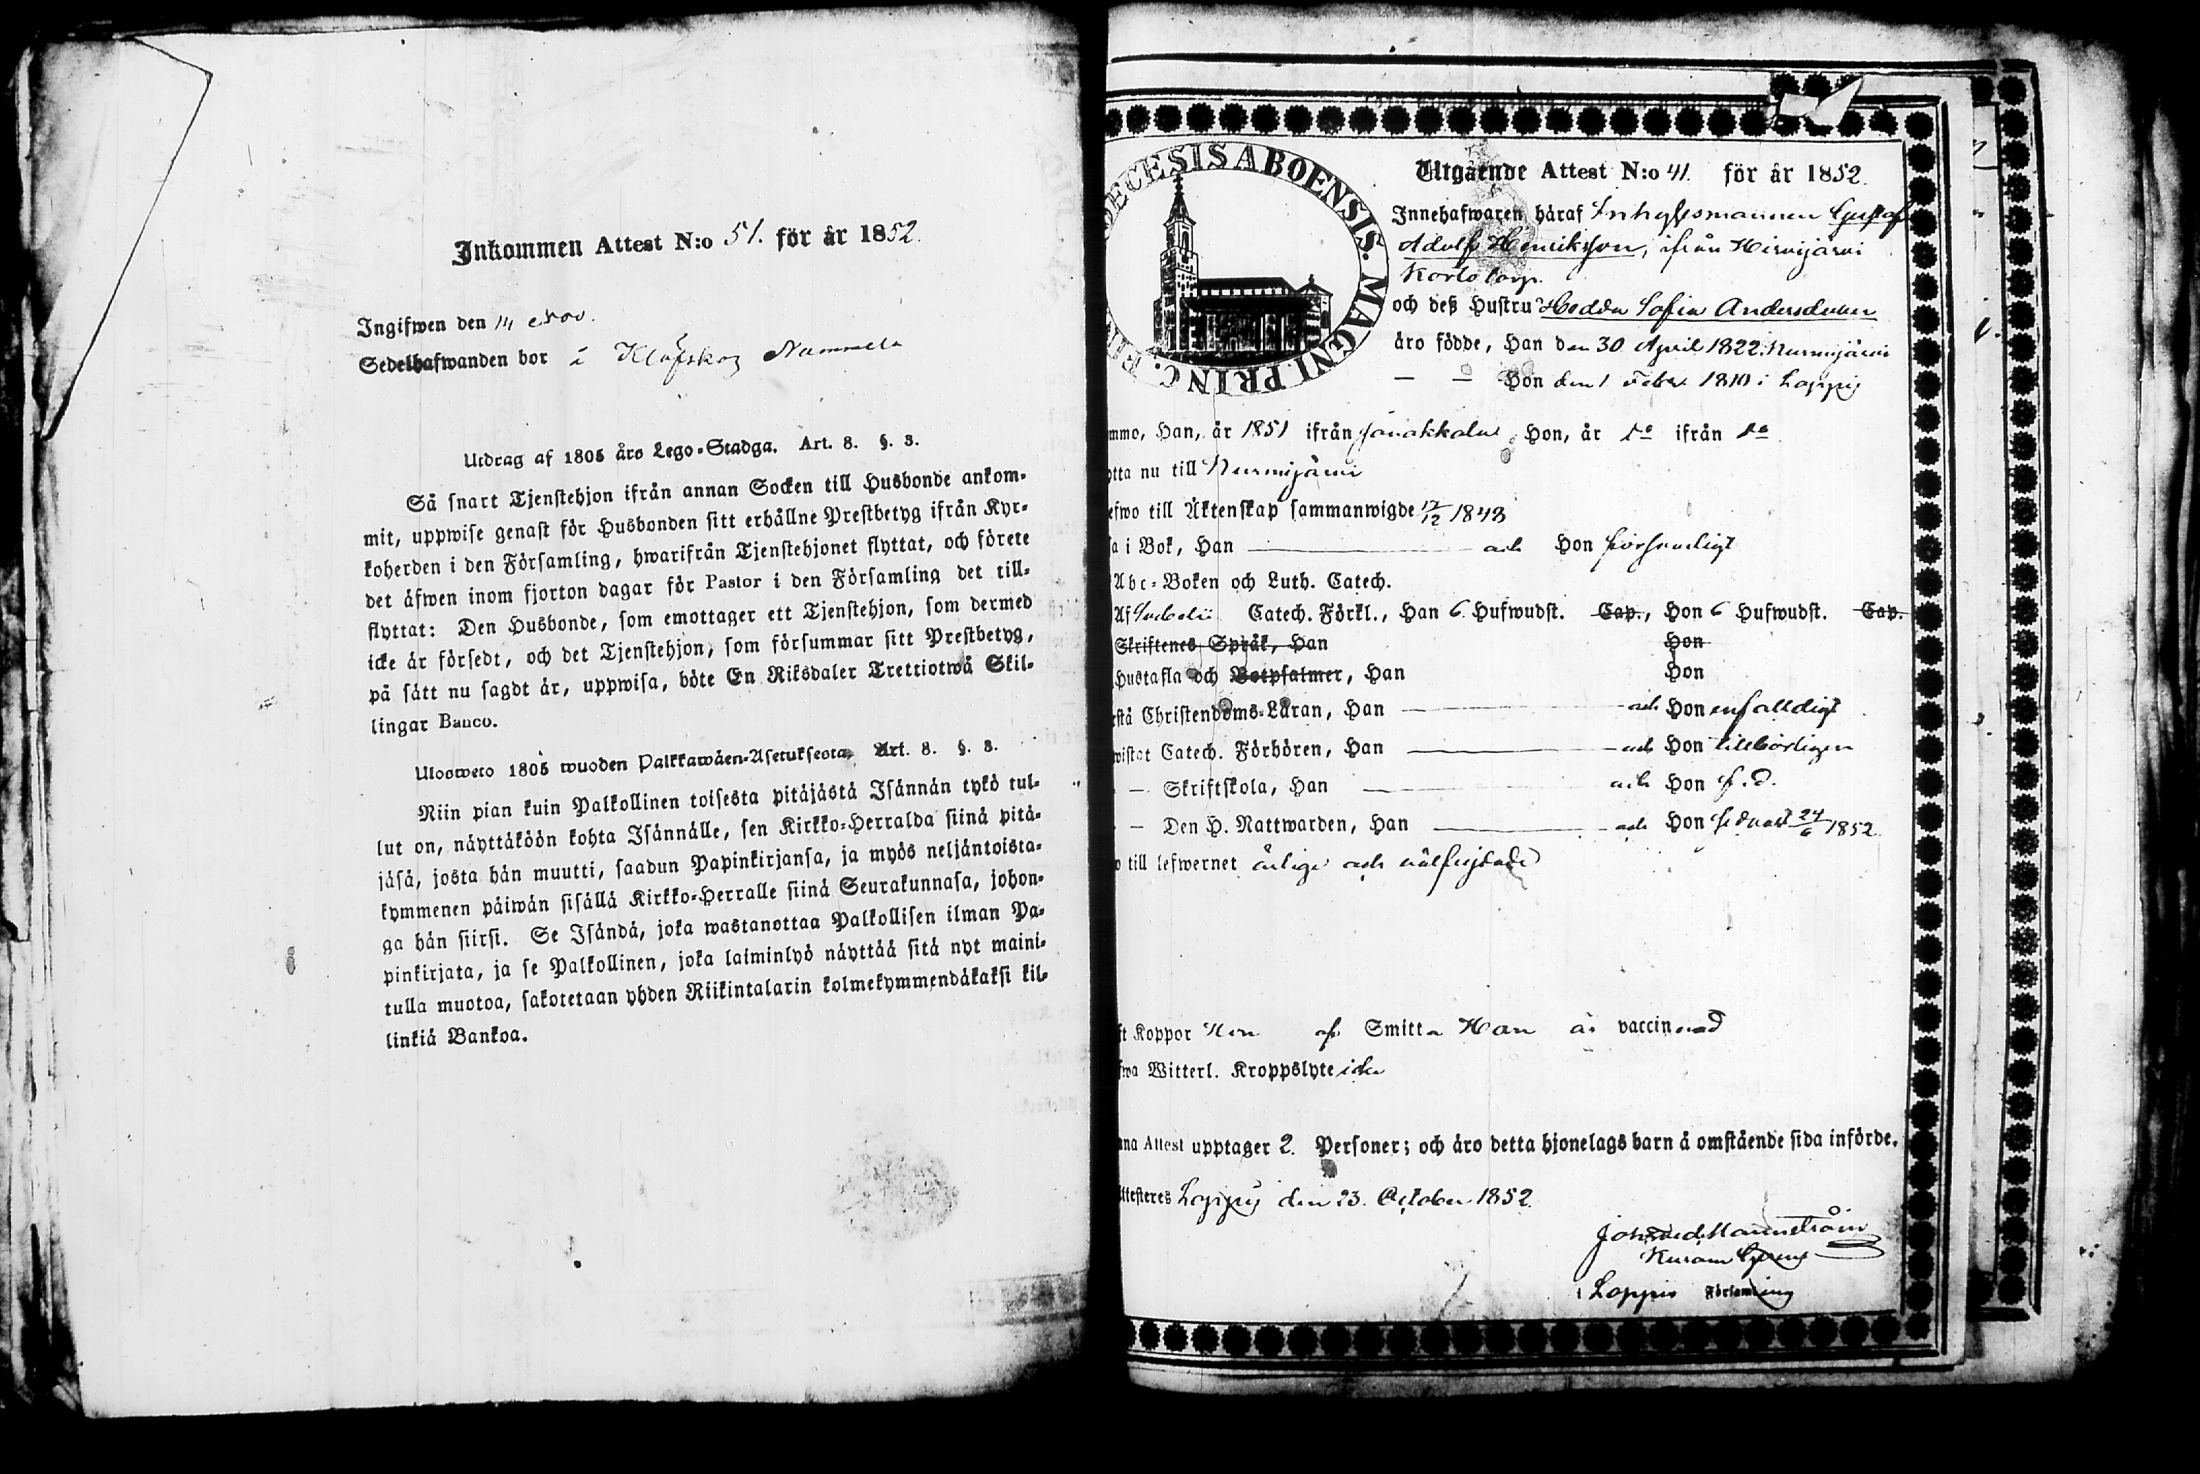 Inkommen Attest N:o 51. för år 1852.
Ingifwen den 14 Nov.
Sedelhafwanden bor å Klöfskog Nummela
Utdrag af 1805 års Lego-Stadga. Art. 8. §. 3.
Så snart Tjenstehjon ifrån annan Socken till Husbonde ankom-
mit, uppwise genast för Husbonden sitt erhållne Prestbetyg ifrån Kyr-
koherden i den Församling, hwarifrån Tjenstehjonet flyttat, och förete
det äfwen inom fjorton dagar för Pastor i den Församling det till-
flyttat: Den Husbonde, som emottager ett Tjenstehjon, som dermed
icke är försedt, och det Tjenstehjon, som försummar sitt Prestbetyg,
på sätt nu sagdt är, uppwisa, böte En Riksdaler Trettiotwå Skil-
lingar Banco.
Ulosweto 1805 wuoden Palkkawäen-Asetuksesta, Art. 8. §. 3.
Niin pian kuin Palkollinen toisesta pitäjästä Isännän tykö tul-
lut on, näyttäköön kohta Isännälle, sen Kirkko-Herralda siinä pitä-
jäsä, josta hän muutti, saadun Papinkirjansa, ja myös neljäntoista-
kymmenen päiwän sisällä Kirkko-Herralle siinä Seurakunnasa, johon-
ga hän siirsi. Se Isändä, joka wastanottaa Palkollisen ilman Pa-
pinkirjata, ja se Palkollinen, joka laiminlyö näyttää sitä nyt maini-
tulla muotoa, sakotetaan yhden Riikintalarin kolmekymmendäkaksi kil-
linkiä Bankoa.
ECESIS ABOENSIS. MAGNI PRINC. FI
Utgående Attest N:o 41. för år 1852.
Innehafwaren häraf Inhysesmannen Gustaf
Adolf Henriksson, ifrån Hirvijärvi
torp.
och deß Hustru Hedda Sofia Andersdotter
äro födde, Han den 30 April 1822 i Nurmijärvi
— — Hon den 1 Febr. 1810 i Loppis
mmo, Han, år 1851 ifrån Janakkala, Hon, år do ifrån do
otta nu till Nurmijärvi
efwo till Äktenskap sammanwigde 17/12 1848
a i Bok, Han — och Hon försvarligt
Abc-Boken och Luth. Catech.
Af Svebelii Catech. Förkl., Han 6 Hufwudst. Cap., Hon 6 Hufwudst. Cap.
Skriftenes Språk, Han Hon
Hustafla och Botpsalmer, Han Hon
stå Christendoms-Läran, Han — och Hon enfalldigt
wistat Catech. Förhören, Han — och Hon tillbörligen
— Skriftskola, Han — och Hon
— Den H. Nattwarden, Han — och Hon sednast 24/6 1852.
o till lefwernet ärlige och välfrejdade
ft Koppor Hon af Smitta Han är vaccinerad
fwa Witterl. Kroppslyte icke
nna Attest upptager 2. Personer; och äro detta hjonelags barn å omstående sida införde.
ttesteres Loppis den 23. October 1852.
i Loppis Församling